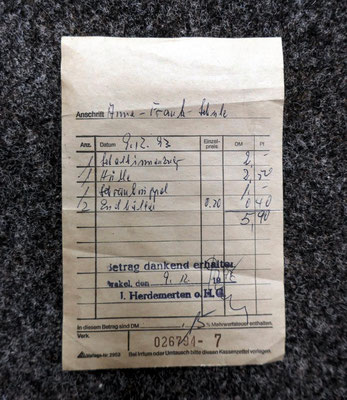 Anschrift Anne-Frank-Schule
Anz. Datum 9.12.93 Einzelpreis DM Pf
1 2 -
1 Hülle 2 50
1 1 -
2 0.20 0 40
5 90
Betrag dankend erhalten
rakel, den 9.12 19
I. Herdemerten o.H.G.
In diesem Betrag sind DM / 15 % Mehrwertsteuer enthalten.
Verk.
026791- 7
Bei Irrtum oder Umtausch bitte diesen Kassenzettel vorlegen.